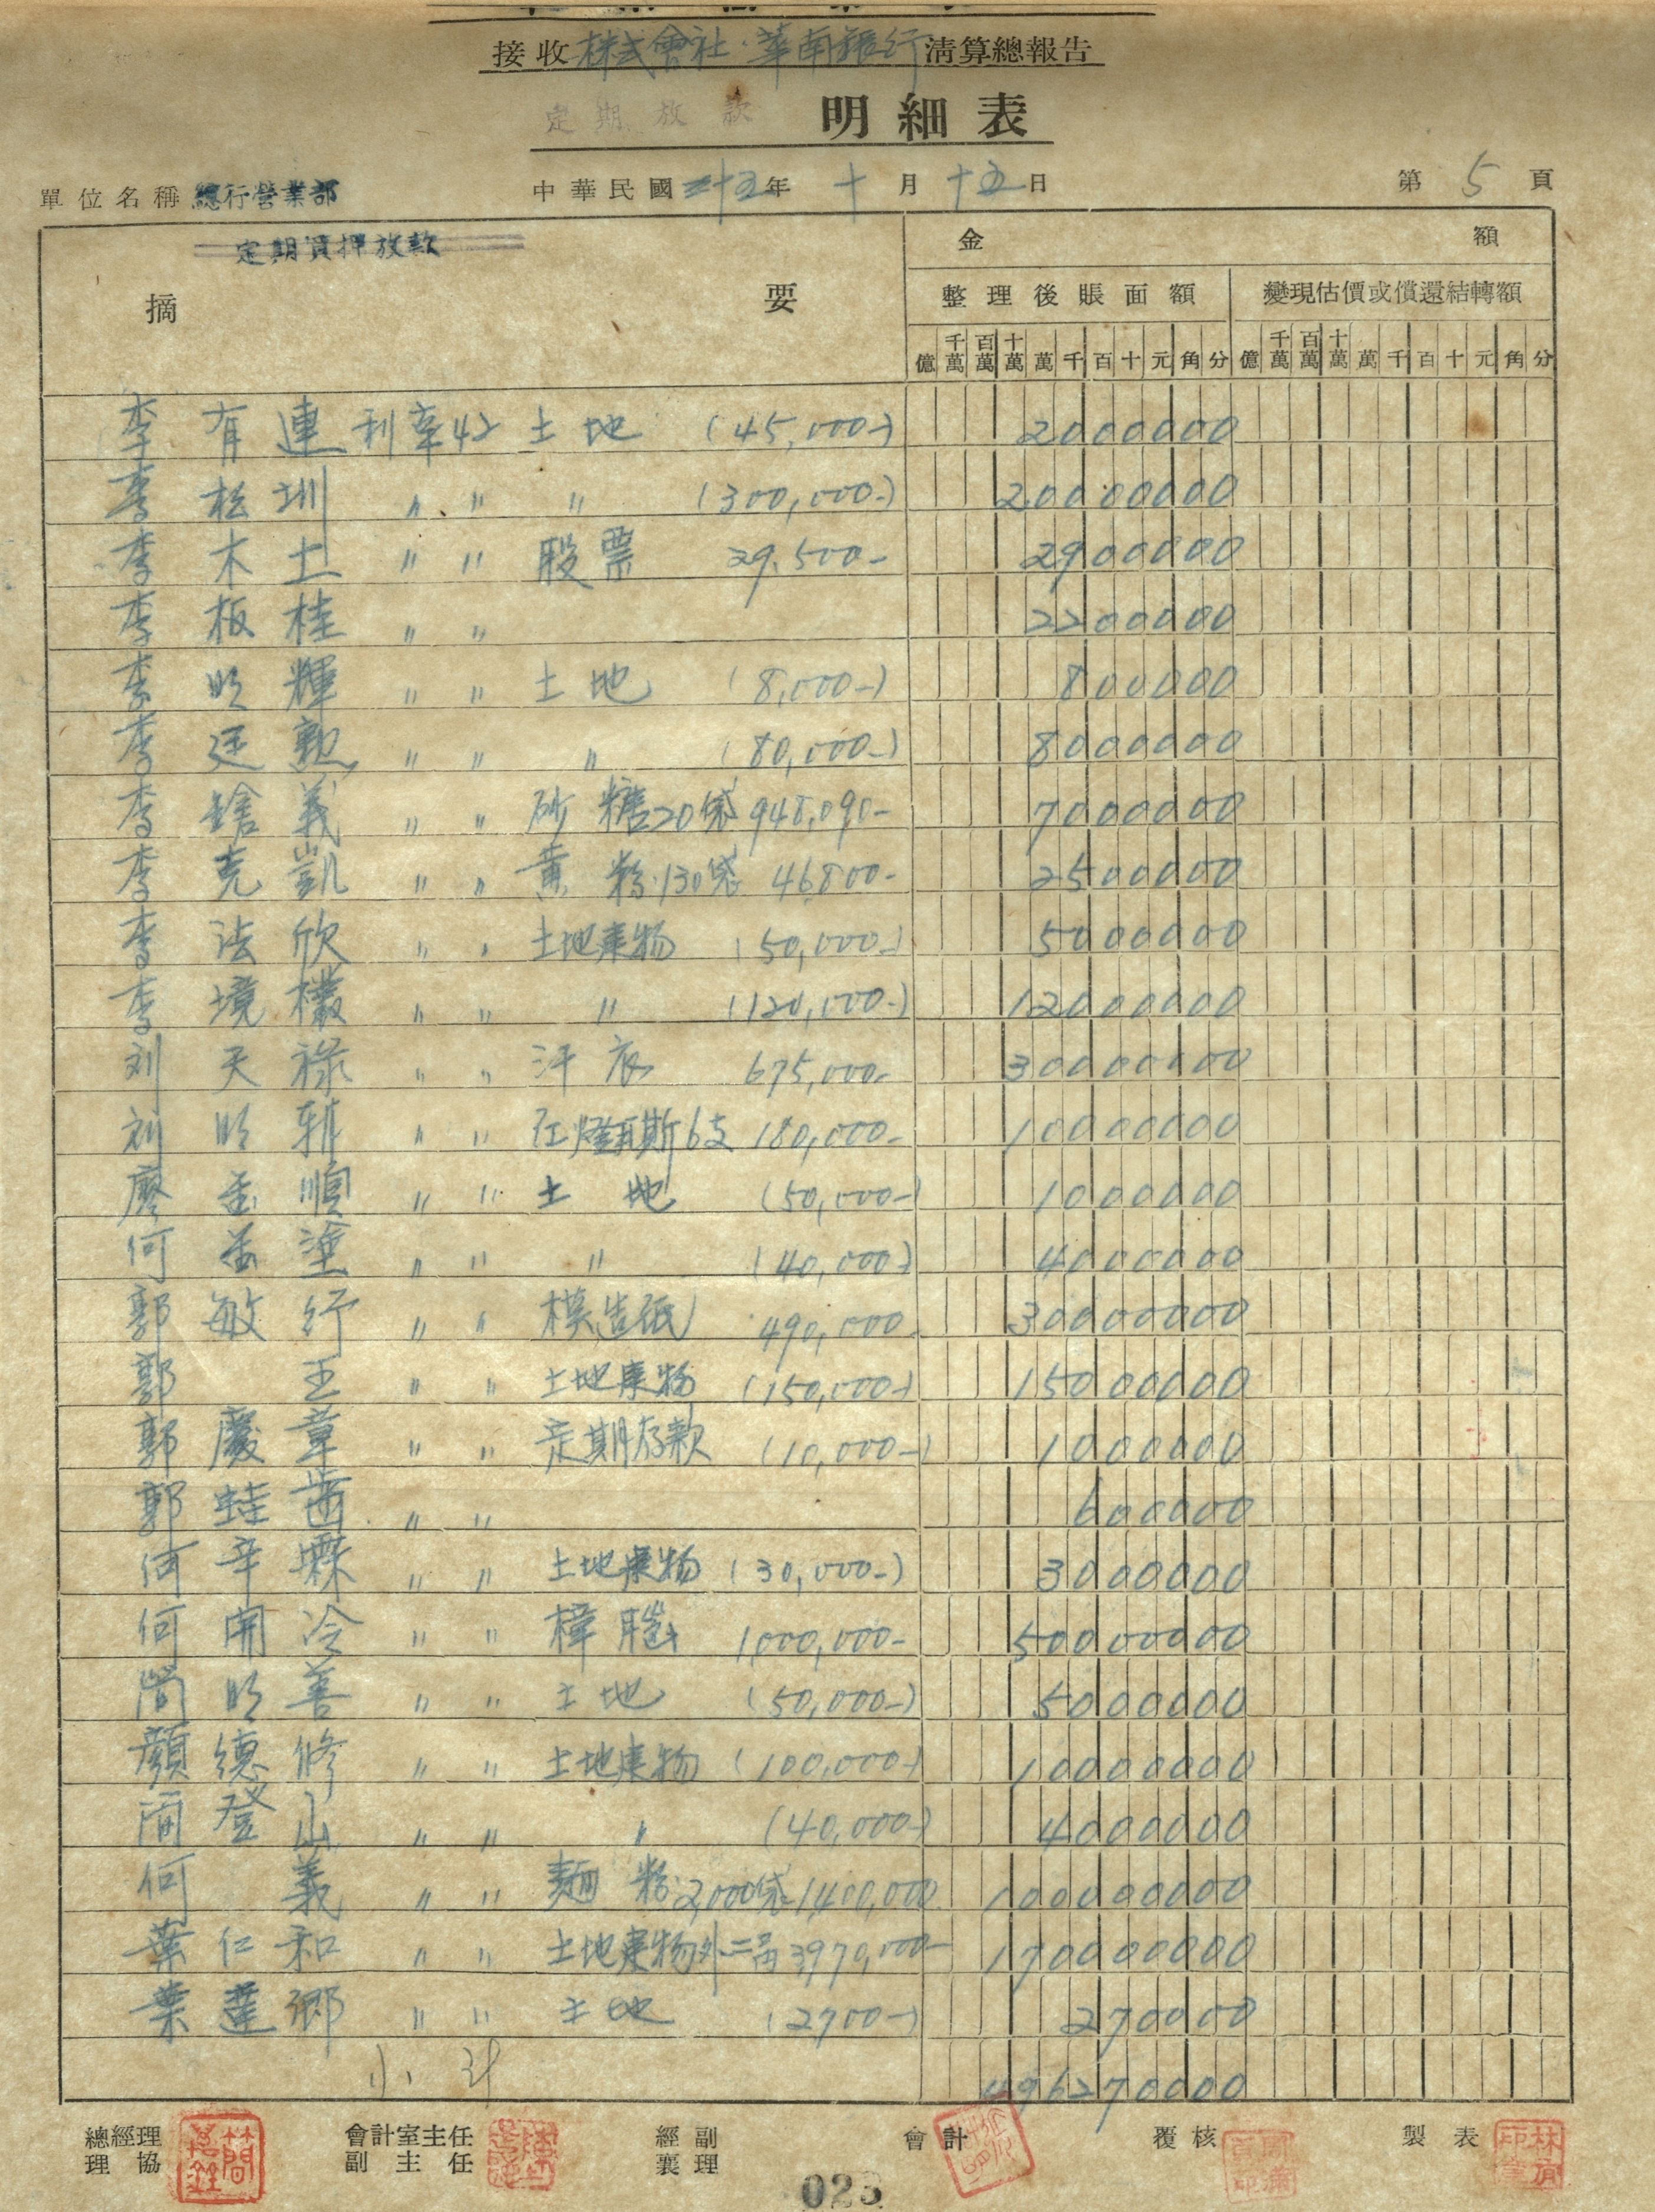 接收株式會社華南銀行清算總報告
定期放款 明細表
單位名稱 總行營業部 中華民國三十五年十月十五日 第5頁
定期質押放款
摘要 金額
整理後賬面額 變現估價或償還結轉額
億 千萬 百萬 十萬 萬 千 百 十 元 角 分 億 千萬 百萬 十萬 萬 千 百 十 元 角 分
李有連 利率42 土地 (45,000-) 2000000
李松圳 〃 〃 〃 (300,000-) 20000000
李木土 〃 〃 股票 29,500- 2900000
李板桂 〃 〃 2200000
李明輝 〃 〃 土地 (8,000-) 800000
李廷勲 〃 〃 〃 (80,000-) 8000000
李義 〃 〃 砂糖20袋 948,090- 7000000
李克凱 〃 〃 粉130袋 46,800- 2500000
李法欣 〃 〃 土地建物 (50,000-) 5000000
李境 〃 〃 〃 (120,000-) 12000000
刘天祿 〃 〃 汗衣 675,000- 30000000
刘明 〃 〃 6支 180,000- 10000000
廖金順 〃 〃 土地 (50,000-) 1000000
何金塗 〃 〃 〃 (40,000-) 4000000
郭敏行 〃 〃 模造紙 490,000 30000000
郭王 〃 〃 土地建物 (150,000-) 15000000
郭慶章 〃 〃 定期存款 (10,000-) 1000000
郭 〃 〃 600000
何辛 〃 〃 土地建物 (30,000-) 3000000
何開冷 〃 〃 樟腦 1,000,000- 50000000
簡明善 〃 〃 土地 (50,000-) 5000000
顏德修 〃 〃 土地建物 (100,000-) 10000000
簡登山 〃 〃 〃 (40,000-) 4000000
何義 〃 〃 麵粉2,000袋 1,400,000 100000000
葉仁和 〃 〃 土地建物外二 3,970,000- 170000000
葉蓮鄉 〃 〃 土地 (2700-) 270000
小計 496270000
總經理 會計室主任 經副 會計 覆核 製表
理協 副主任 襄理
023